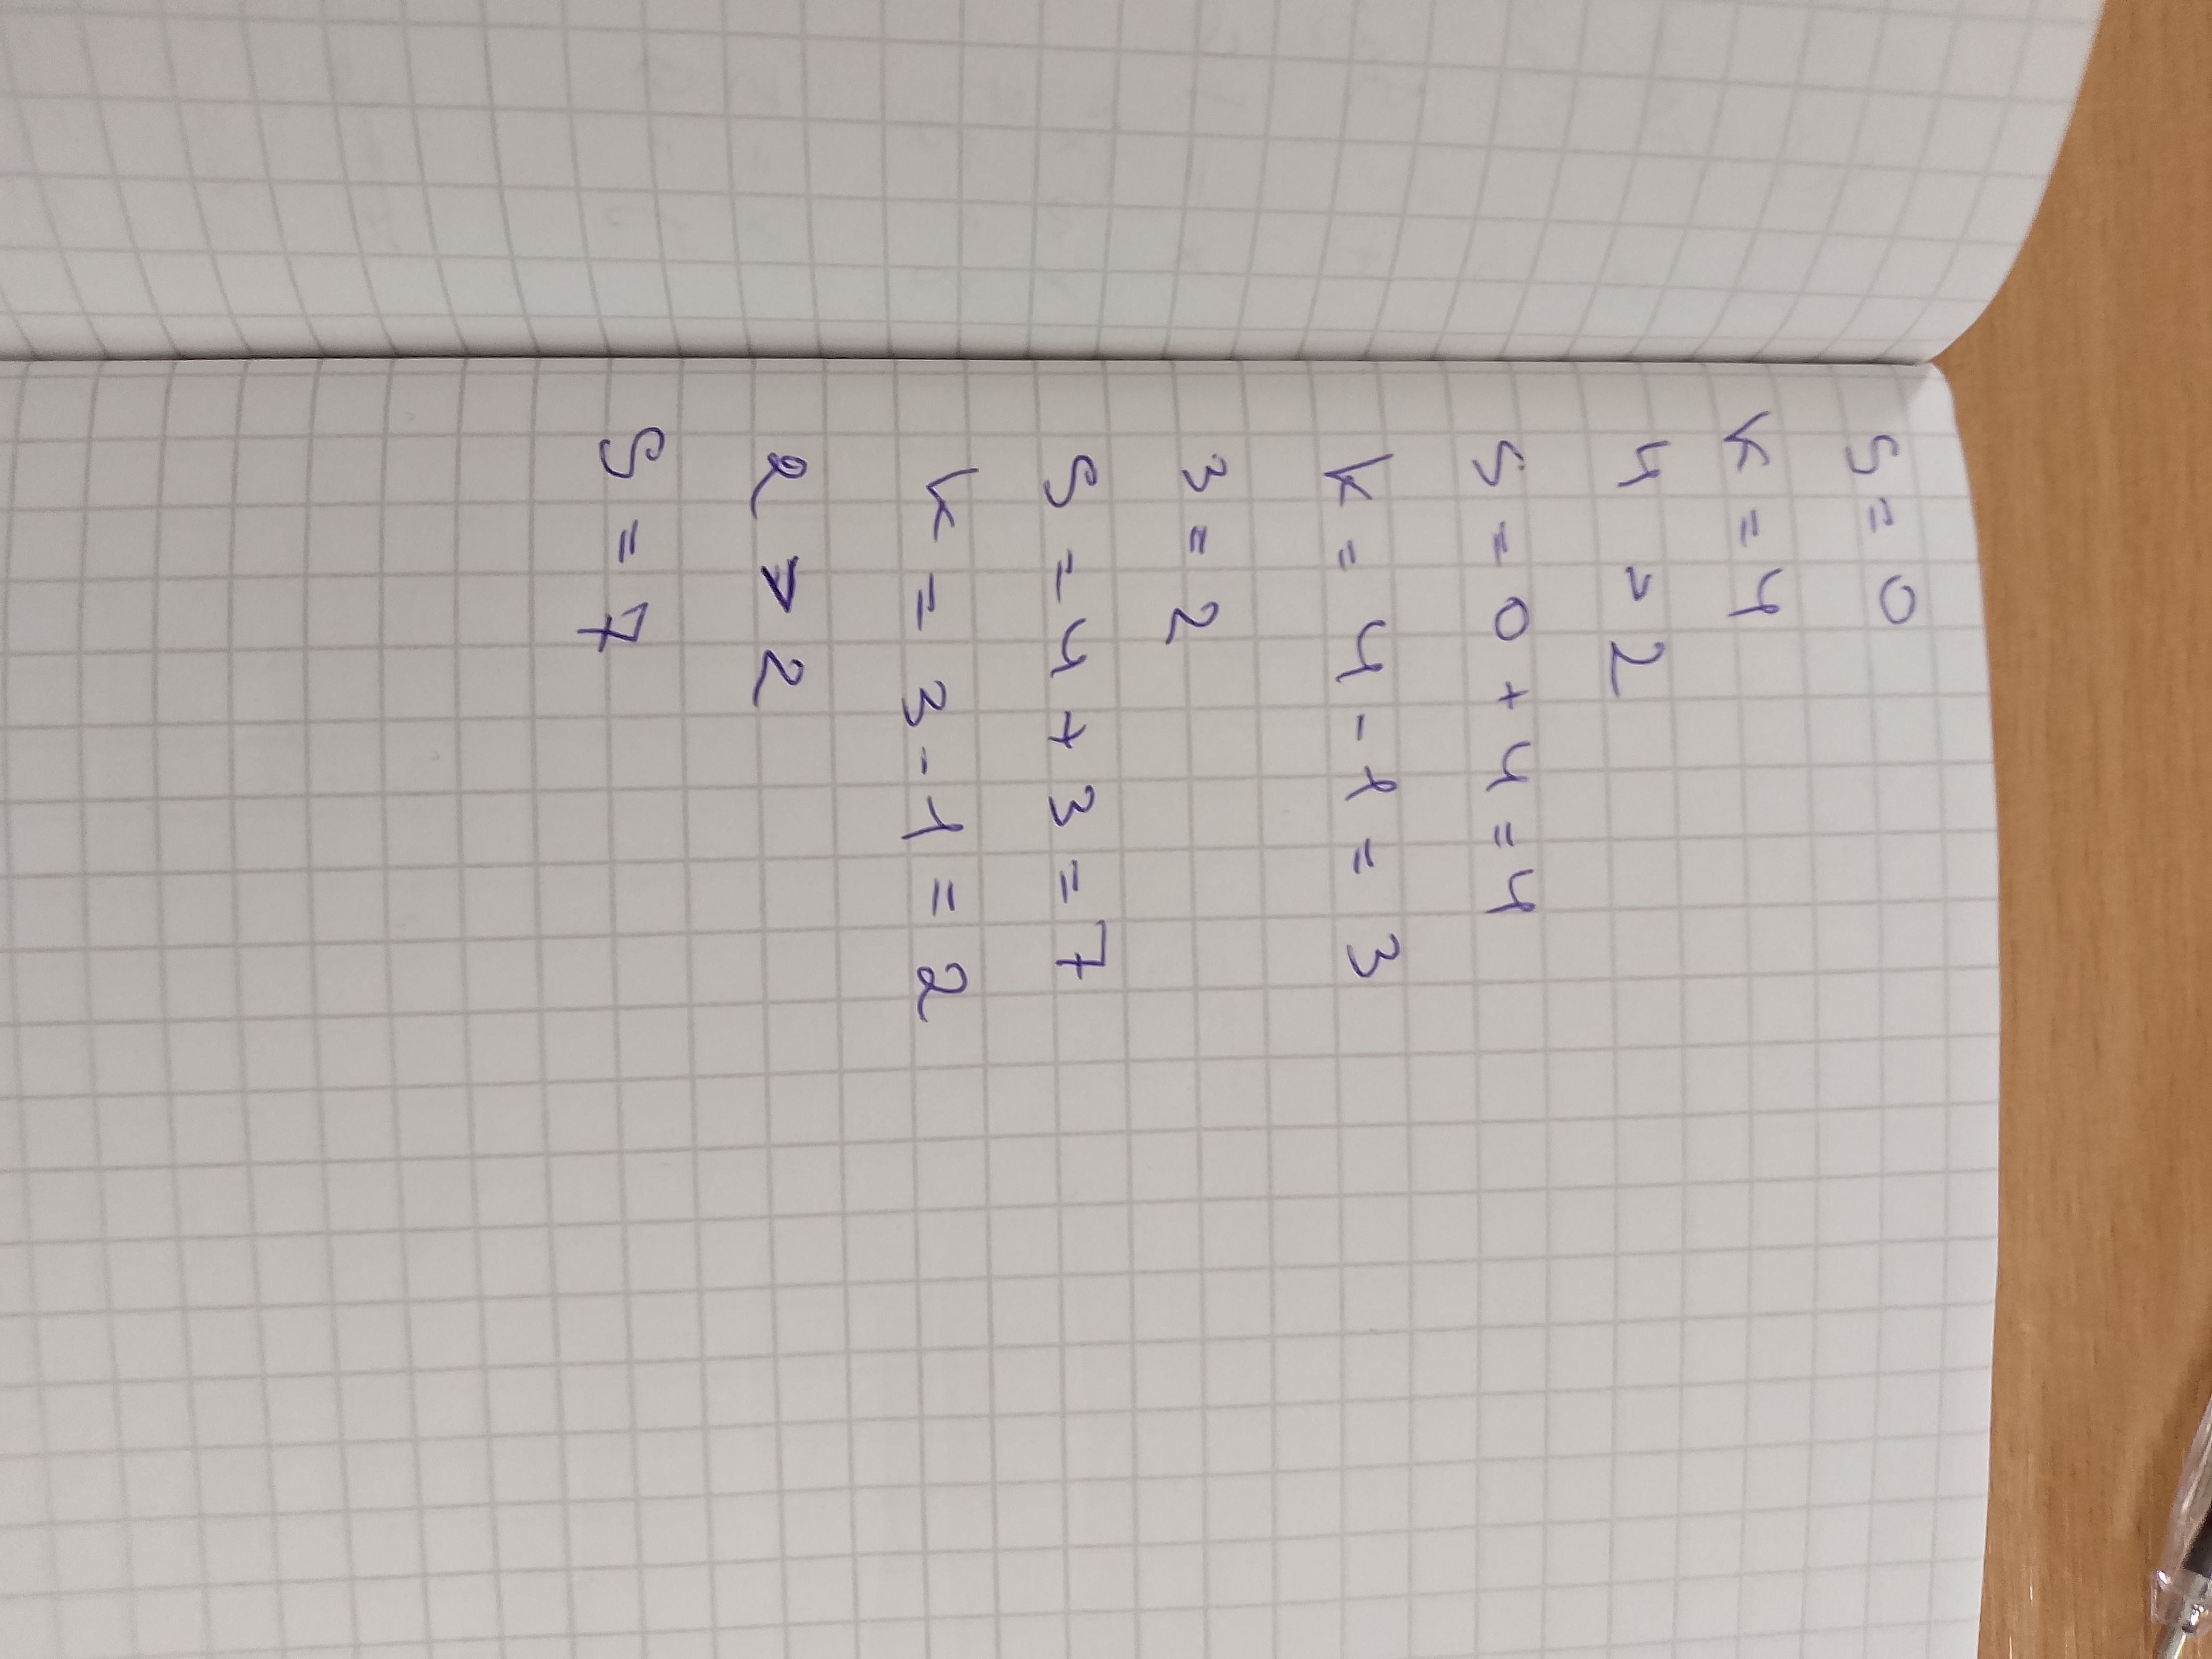 S = 0
k = 4
4 > 2
S = 0 + 4 = 4
k = 4 - 1 = 3
3 = 2
S = 4 + 3 = 7
k = 3 - 1 = 2
2 > 2
S = 7